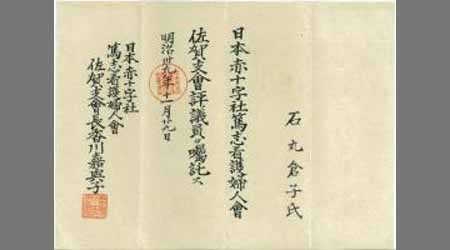 石丸倉子氏
日本赤十字社篤志看護婦人會
佐賀支會評議員ヲ囑託ス
明治卅九年十一月廿九日
日本赤十字社
篤志看護婦人會
佐賀支會長香川嘉與子